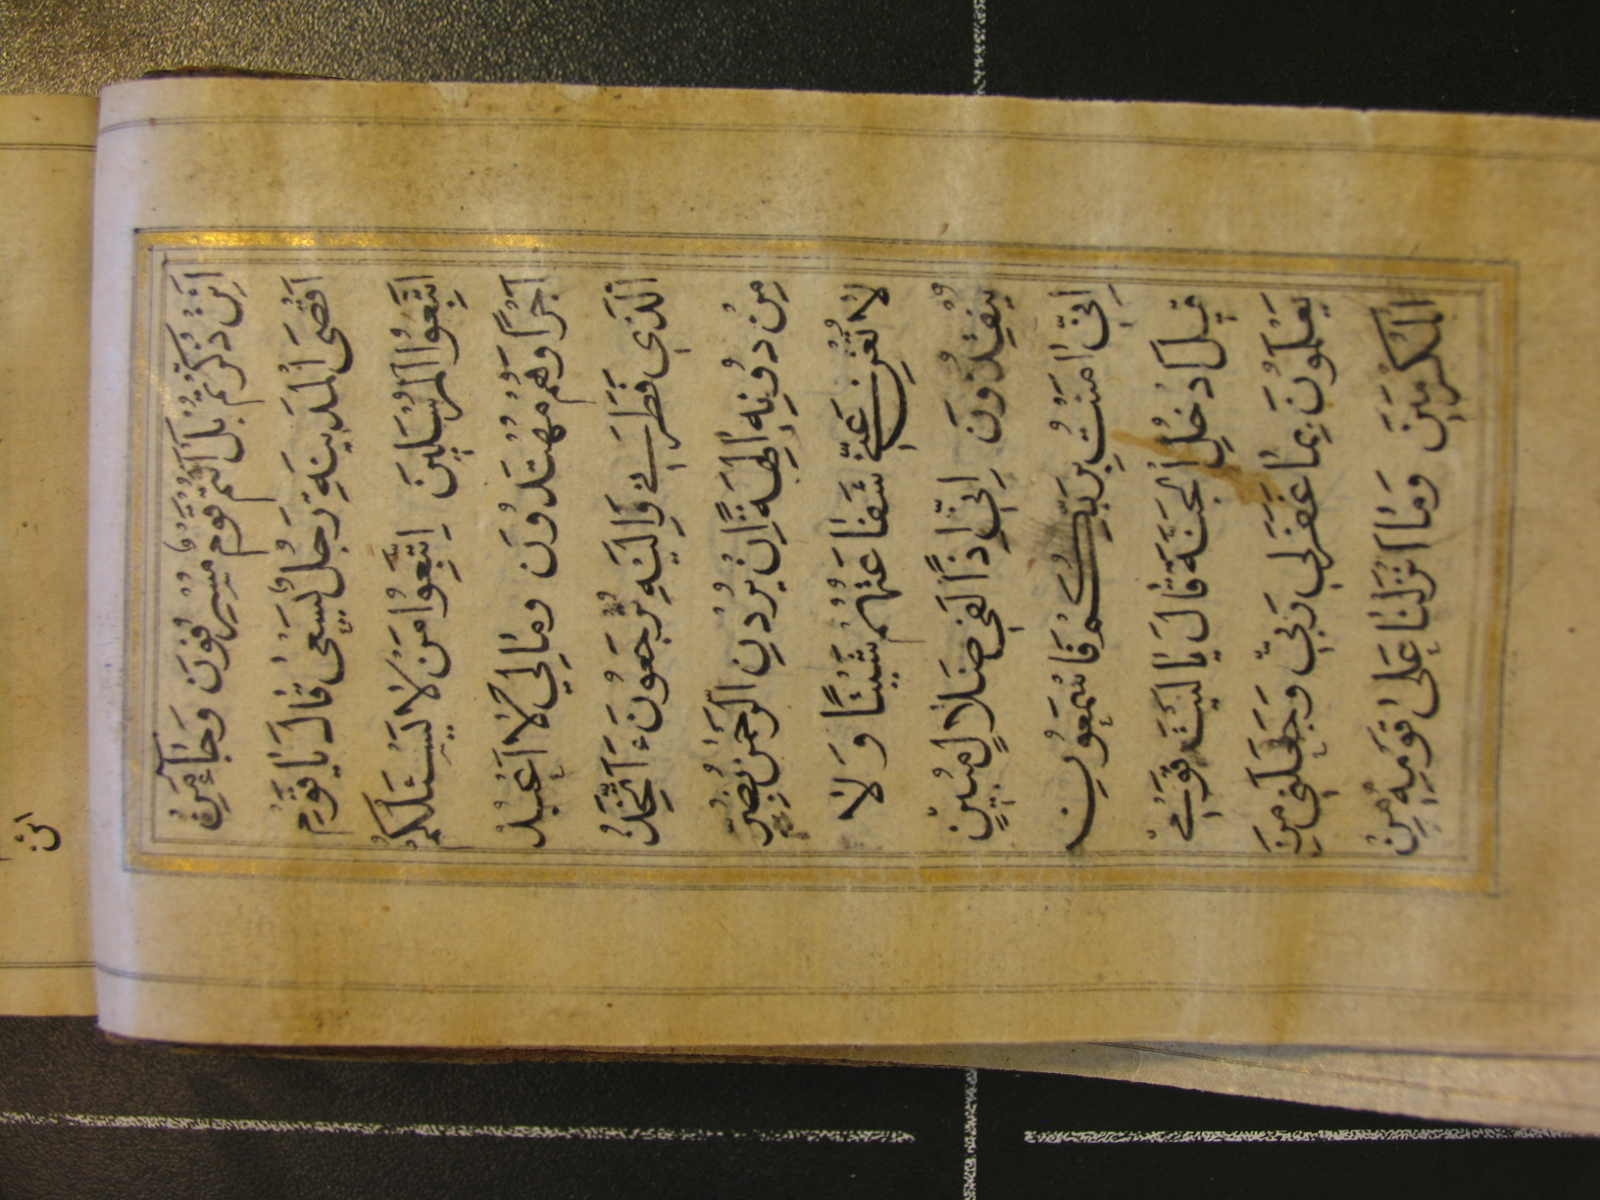 اَئِنْ ذُكِّرْتُمْ بَلْ اَنْتُمْ قَوْمٌ مُسْرِفُونَ وَجَاءَ مِنْ
اَقْصَى الْمَدِينَةِ رَجُلٌ يَسْعٰى قَالَ يَا قَوْمِ
اتَّبِعُوا الْمُرْسَلِينَ اِتَّبِعُوا مَنْ لَا يَسْئَلُكُمْ
اَجْرًا وَهُمْ مُهْتَدُونَ وَمَا لِيَ لَا اَعْبُدُ
الَّذِي فَطَرَنِي وَاِلَيْهِ تُرْجَعُونَ ءَاَتَّخِذُ
مِنْ دُونِهِ اٰلِهَةً اِنْ يُرِدْنِ الرَّحْمٰنُ بِضُرٍّ
لَا تُغْنِ عَنِّي شَفَاعَتُهُمْ شَيْئًا وَلَا
يُنْقِذُونَ اِنِّي اِذًا لَفِي ضَلَالٍ مُبِينٍ
اِنِّي اٰمَنْتُ بِرَبِّكُمْ فَاسْمَعُونِ
قِيلَ ادْخُلِ الْجَنَّةَ قَالَ يَا لَيْتَ قَوْمِي
يَعْلَمُونَ بِمَا غَفَرَ لِي رَبِّي وَجَعَلَنِي مِنَ
الْمُكْرَمِينَ وَمَا اَنْزَلْنَا عَلٰى قَوْمِهِ مِنْ
ائن